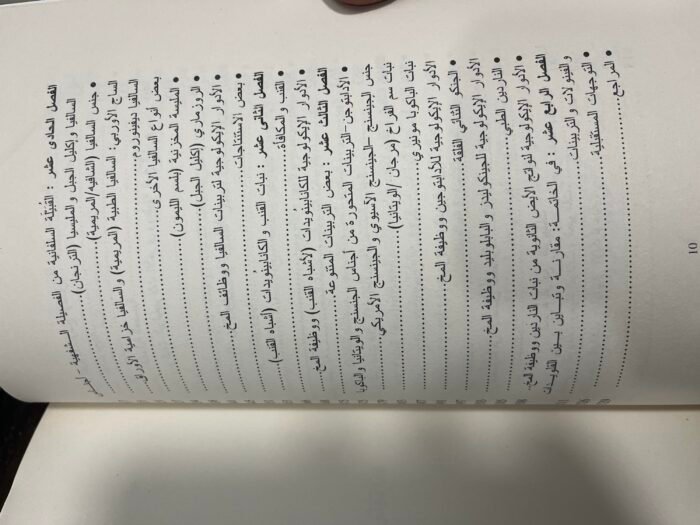 الفصل الحادى عشر : القبيلة السلفانية من الفصيلة الشفهية – أجناس
السالفيا وإكليل الجبل والمليسيا (الترنجان)
• جنس السالفيا (الشافية/المريمية)
الساج الأوربي: السالفيا الطبية (المريمية) والسالفيا خزامية الأوراق
السالفيا ديفينوروم
بعض أنواع السالفيا الأخرى
• المليسة المخزنية (بلسم الليمون)
• الروزماري (إكليل الجبل)
• الأدوار الإيكولوجية لتربينات السالفيا ووظائف المخ
• بعض الاستنتاجات
الفصل الثانى عشر : نبات القنب و الكانابينويدات (أشباه القنب)
• القنب و المكافأة
• الأدوار الإيكولوجية للكانابينويدات (لأشباه القنب) ووظيفة المخ
الفصل الثالث عشر : بعض التربينات المتنوعة
• الأدابتوجن–التربينات المتحورة من أجناس الجنسنج و الويثانيا والباكوبا
جنس الجينسنج –الجينسنج الآسيوي و الجينسنج الأمريكي
نبات سم الفراخ (مرجان /الويثانيا)
نبات الباكوبا مونيري
الأدوار الإيكولوجية للأدابتوجين ووظيفة المخ
• الجنكو الثنائي الفلقة
الأدوار الإيكولوجية للجينكوليدز و البايلوبليد ووظيفة المخ
• الناردين الطبي
• الأدوار الإيكولوجية لنواتج الأيض الثانوية من نبات الناردين ووظيفة المخ
الفصل الرابع عشر : في الخاتمة: مقارنة وتباين بين القلويدات
و الفينولات و التربينات
• التوجهات المستقبلية
• المراجع
10